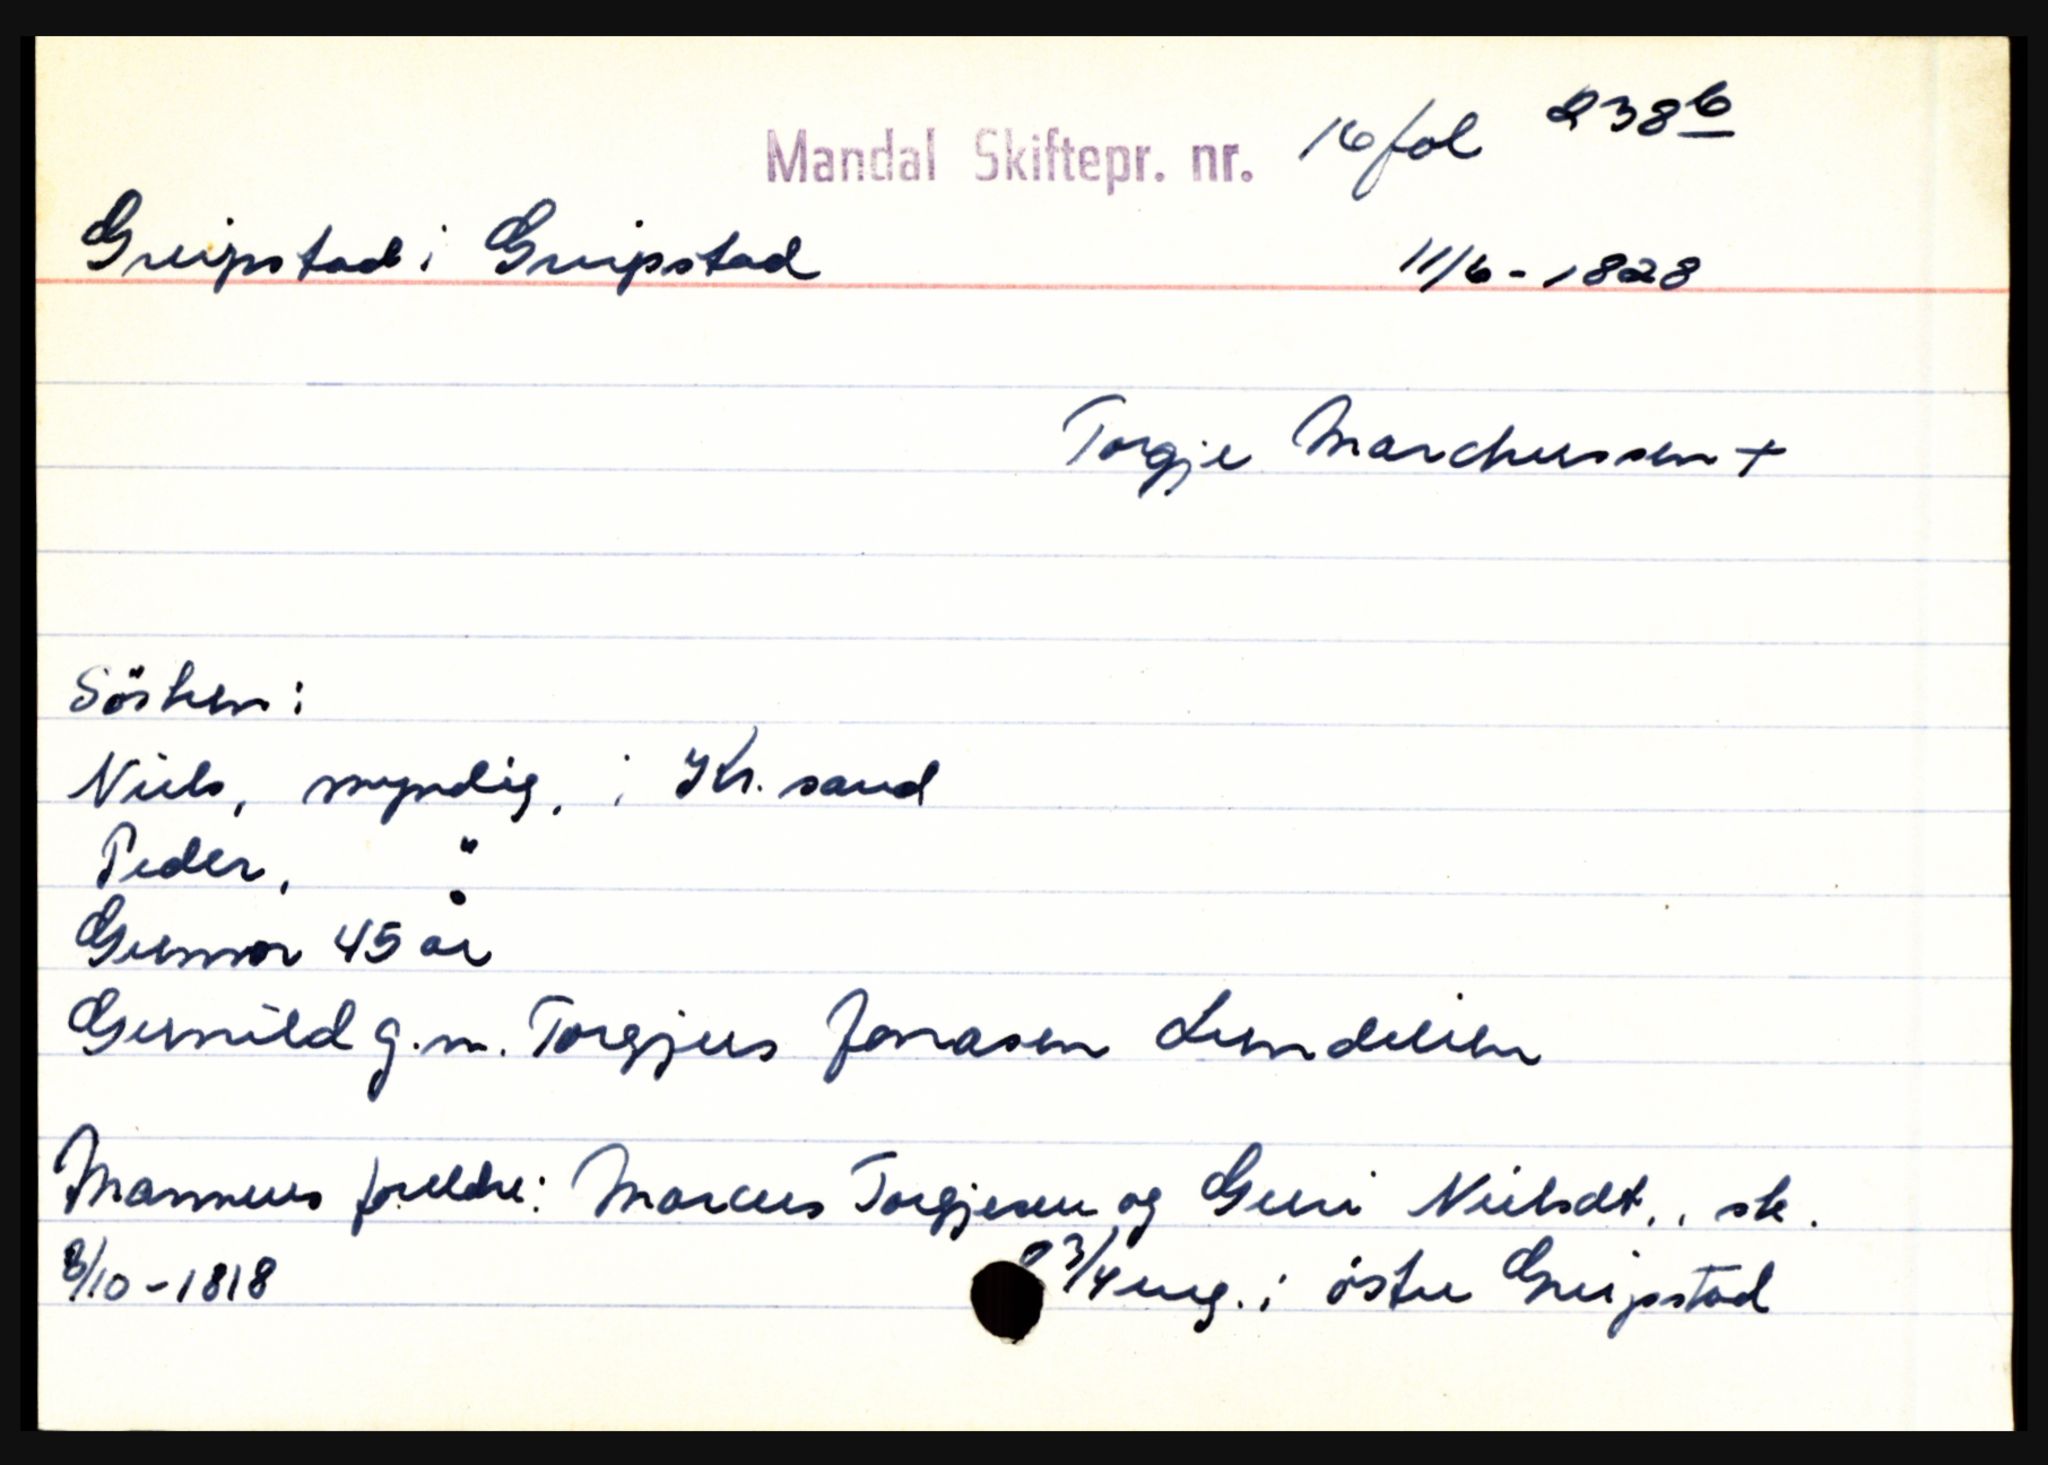 Mandal Skiftepr. nr. 16 fol 238b
Greipstad i Greipstad 11/6-1828
Torgje Marchussen +
Sösken:
Niels, myndig, i Kr.sand
Peder, "
Gunnor 45 år
Gunnild g.m. Torgjus Jonasen Lundelien
Mannens foreldre: Marcus Torgjesen og Guri Nielsdt., sk.
8/10-1818 3/4 eng. i östre Greipstad